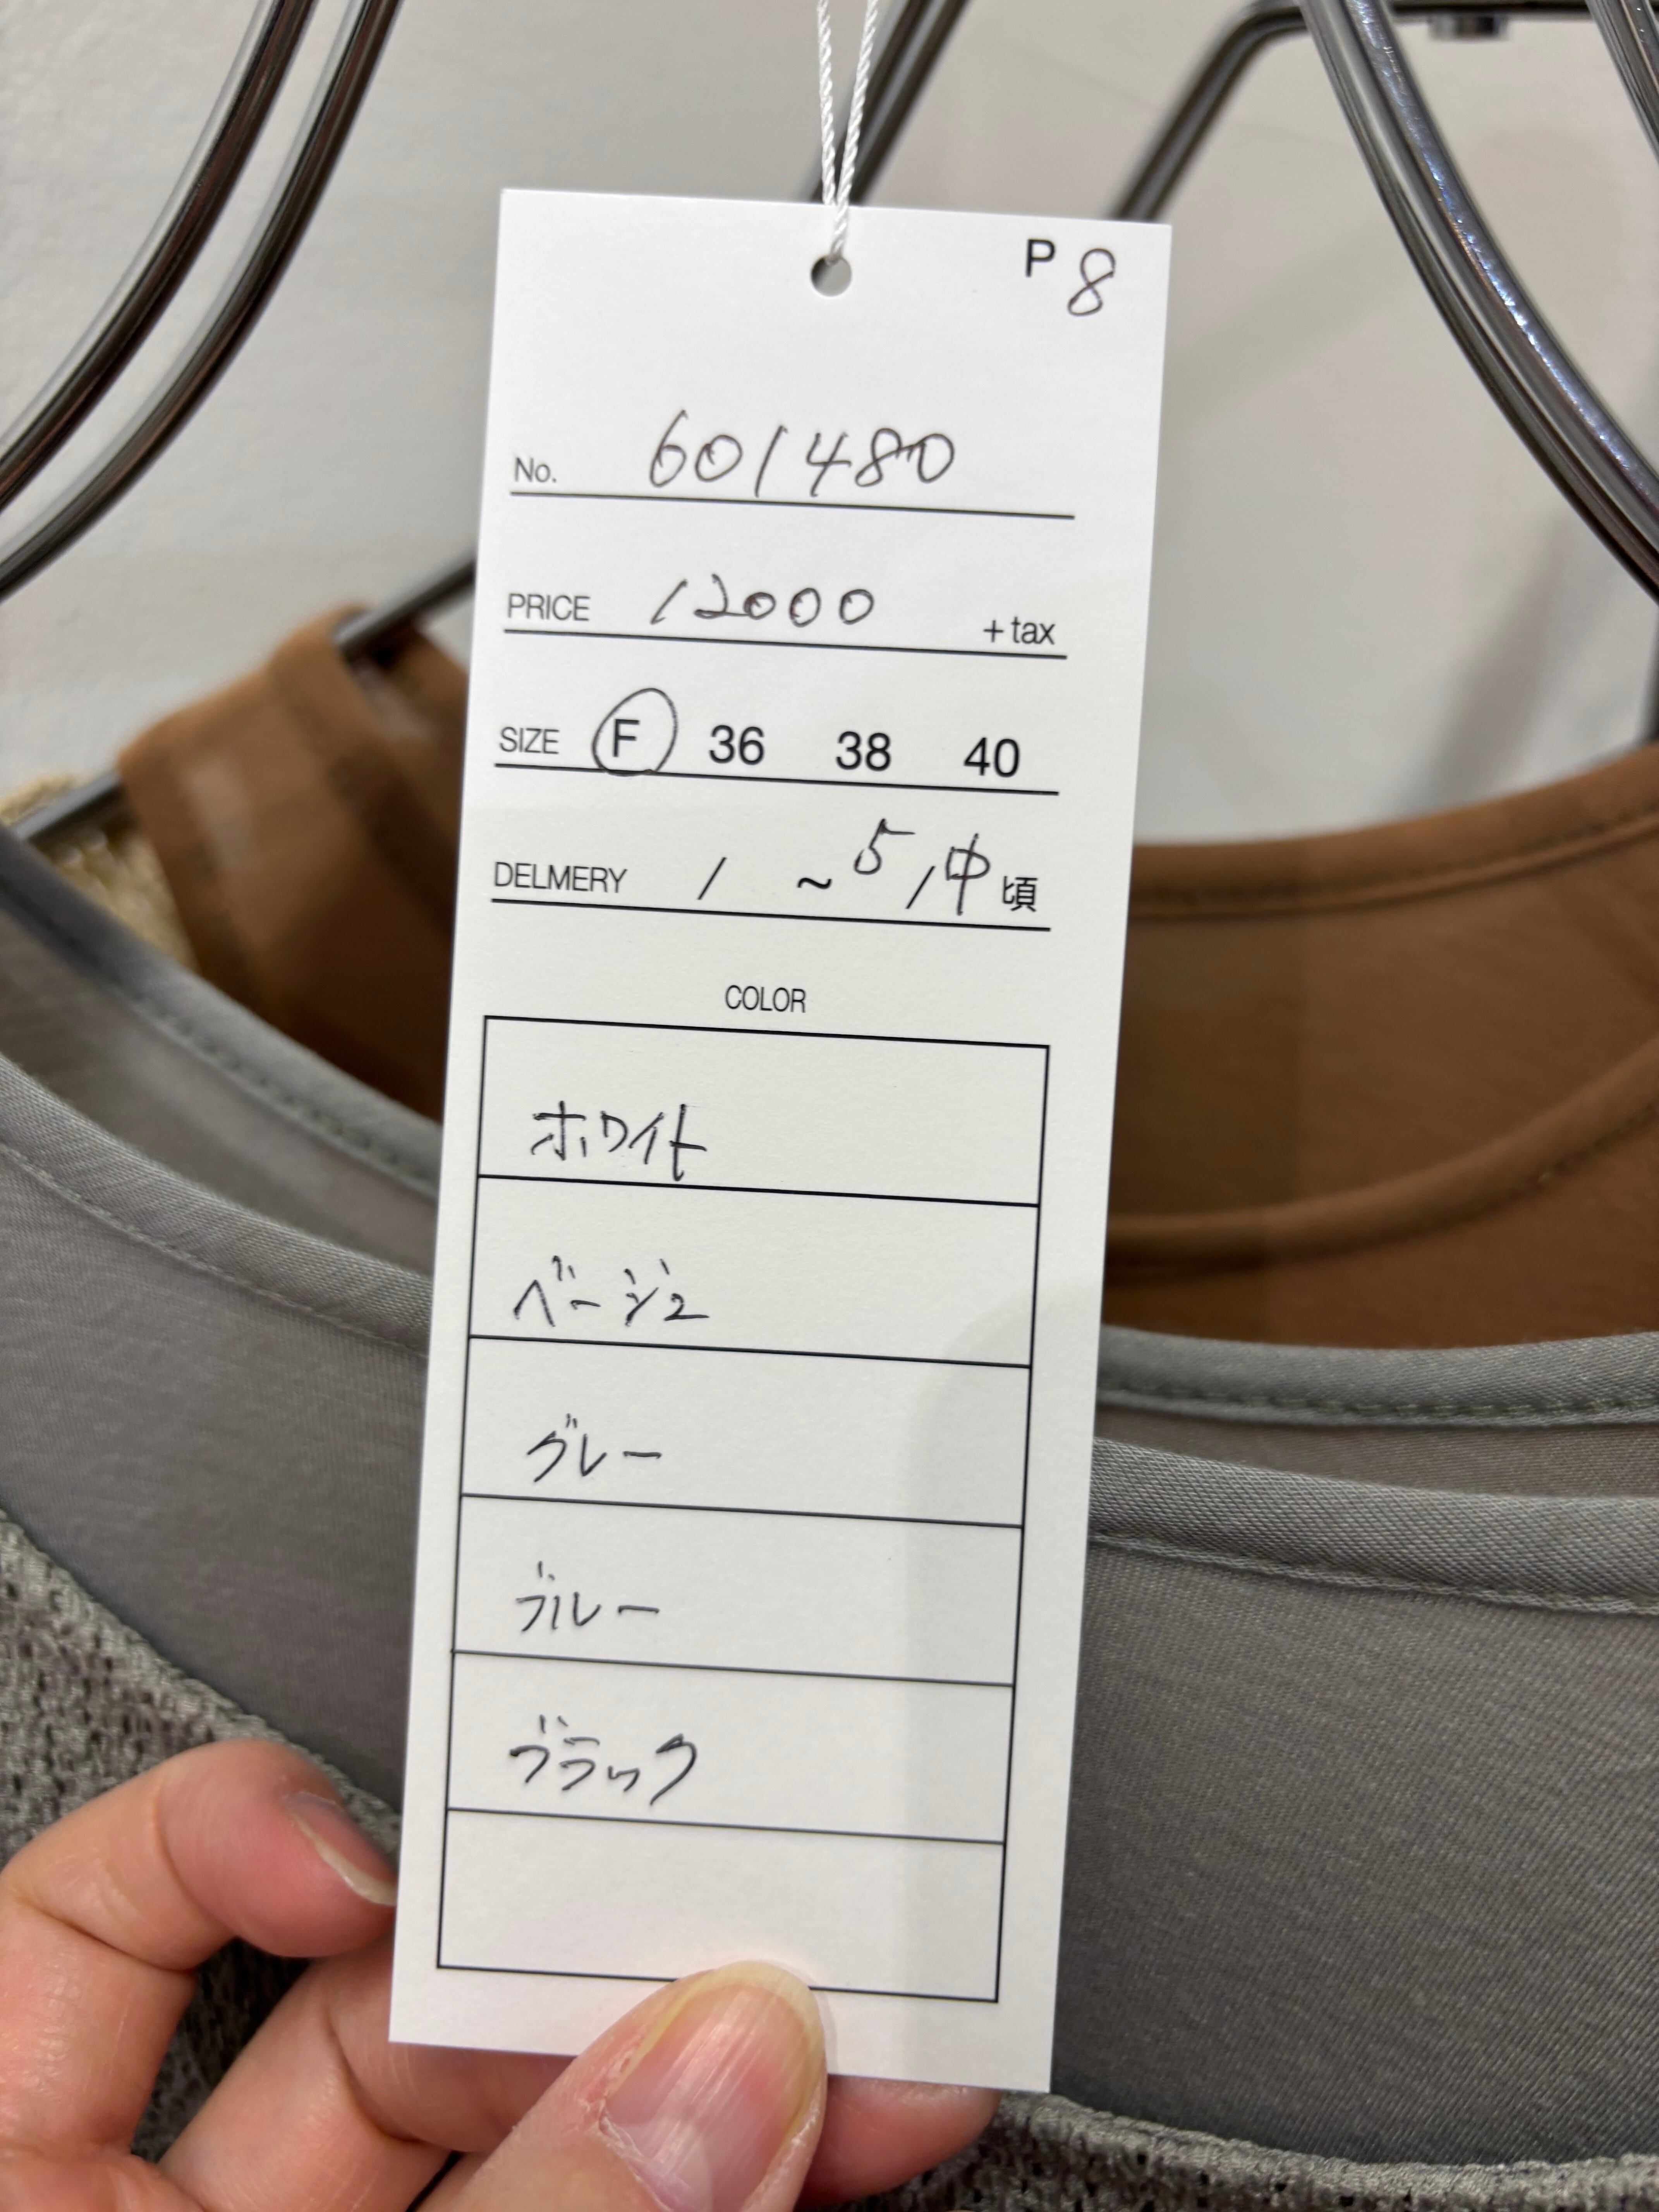 P 8
No. 601480
PRICE 12000 +tax
SIZE F 36 38 40
DELMERY / ~ 5/中頃
COLOR
ホワイト
ベージュ
グレー
ブルー
ブラック